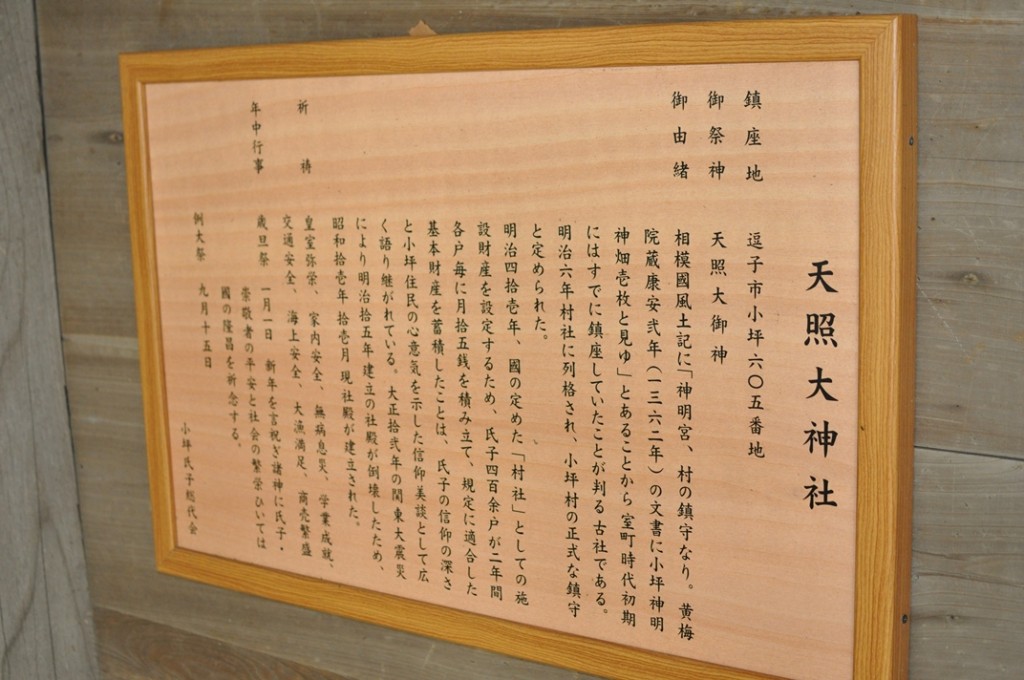 天照大神社
鎮座地　逗子市小坪六〇五番地
御祭神　天照大御神
御由緒　相模國風土記に「神明宮、村の鎮守なり。黄梅
院蔵康安弐年（一三六二年）の文書に小坪神明
神畑壱枚と見ゆ」とあることから室町時代初期
にはすでに鎮座していたことが判る古社である。
明治六年村社に列格され、小坪村の正式な鎮守
と定められた。
明治四拾壱年、國の定めた「村社」としての施
設財産を設定するため、氏子四百余戸が二年間
各戸毎に月拾五銭を積み立て、規定に適合した
基本財産を蓄積したことは、氏子の信仰の深さ
と小坪住民の心意気を示した信仰美談として広
く語り継がれている。大正拾弐年の関東大震災
により明治拾五年建立の社殿が倒壊したため、
昭和拾壱年拾壱月現社殿が建立された。
祈祷　皇室弥栄、家内安全、無病息災、学業成就、
交通安全、海上安全、大漁満足、商売繁盛
年中行事　歳旦祭　一月一日　新年を言祝ぎ諸神に氏子・
崇敬者の平安と社会の繁栄ひいては
國の隆昌を祈念する。
例大祭　九月十五日
小坪氏子総代会